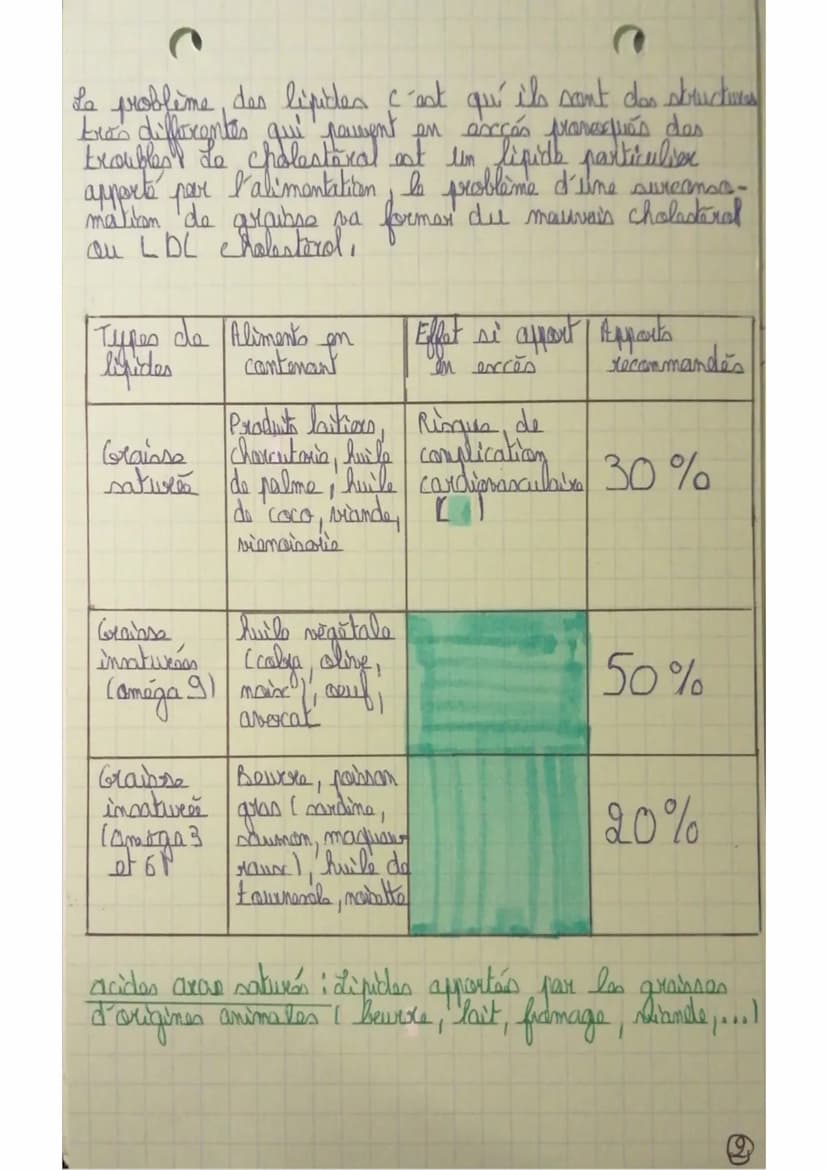 Le problème des lipides c'est qu'ils sont des structures
très différentes qui peuvent en excès provoqués des
troubles. Le cholestérol est un lipide particulier
apporté par l'alimentation, le problème d'une surconso-
mation de graisse va former du mauvais cholestérol
ou LDL cholestérol.
Types de lipides
Aliments en contenant
Effet si apport en excès
Apports recommandés
Graisse
saturée
Produits laitiers,
charcuterie, huile
de palme, huile
de coco, viande,
viennoiserie
Risque de
complication
cardiovasculaire
30%
Graisse
insaturées
(oméga 9)
huile végétale
(colza, olive,
noix), oeuf,
avocat
50%
Graisse
insaturée
(omega 3
et 6)
Beurre, poisson
gras (sardine,
saumon, maquau-
raux), huile de
tournesole, noisette
20%
acides gras saturés : Lipides apportés par les graisses
d'origines animales (beurre, lait, fromage, viande,...)
2